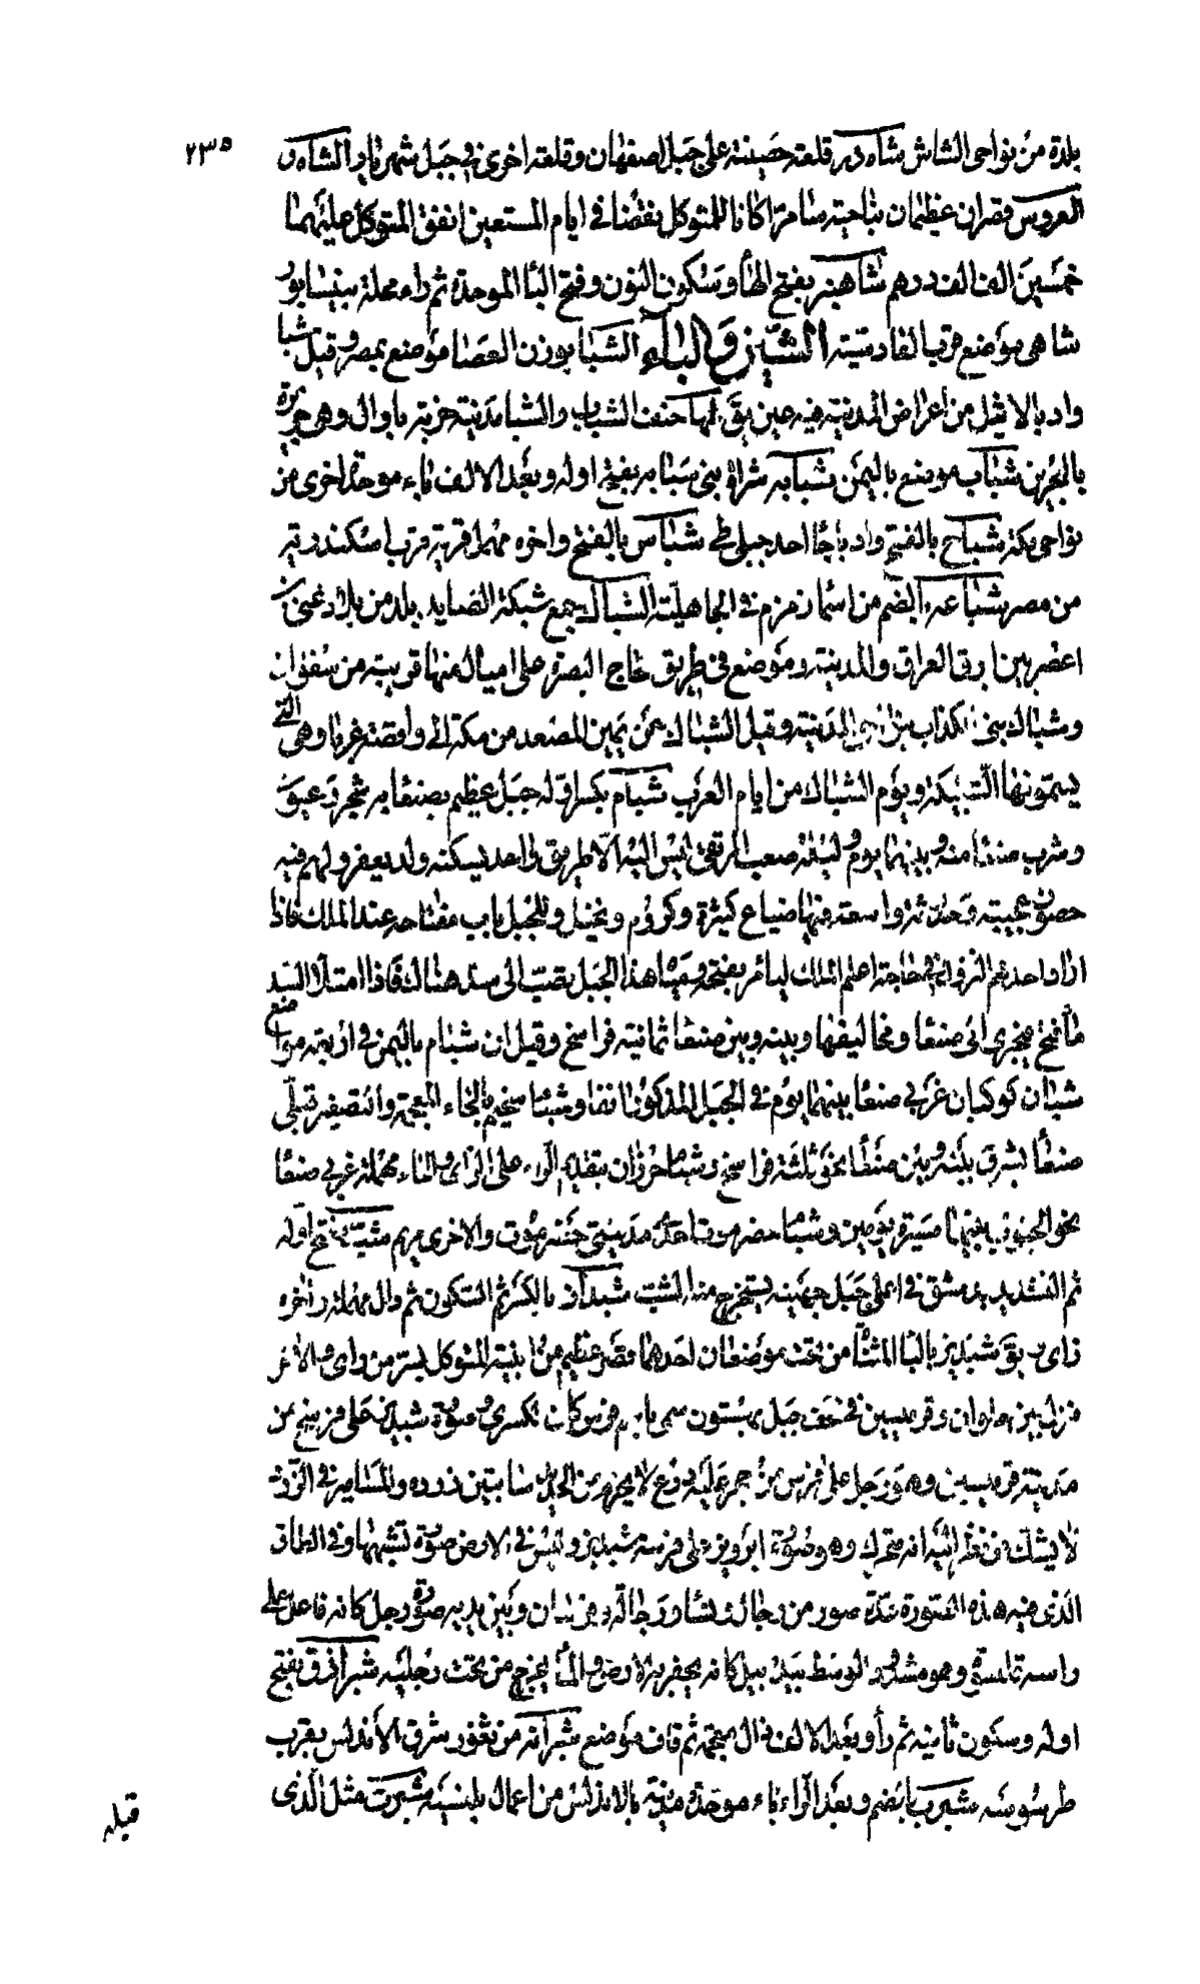 ٢٣٥
بلدة من نواحى الشاش شاه در قلعة حصينة على جبل اصفهان وقلعة اخرى فى جبل شهريار والشاه و
العروس قصران عظيمان بناحية سامرا كانا للمتوكل نقضا فى ايام المستعين انفق المتوكل عليهما
خمسين الف الف درهم شاهنبر بفتح الهاء وسكون النون وفتح الباء الموحدة ثم راء محلة بنيسابور
شاهى موضع قرب القادسية الشين والباء الشبا بوزن العصا موضع بمصر وقيل شبا
واد بالاثيل من اعراض المدينة فيه عين يق لها خيف الشباب والشبا مدينة خربة باوال وهى جزيرة
بالبحرين شباب موضع باليمن شبابه شراة بنى شبابه بفتح اوله وبعد الالف باء موحدة اخرى من
نواحى مكة شباح بالفتح واد باجا احد جبلى طى شباس بالفتح واخره مهملة قرية قرب اسكندرية
من مصر شباعه بالضم من اسماء زمزم فى الجاهلية الشباك جمع شبكة الصايد بلد من بلاد غنى بن
اعصر بين ابرق العراق والمدينة وموضع فى طريق حاج البصرة على اميال منها قريبة من سفوان
وشباك بنى الكذاب بنواحى المدينة وقيل الشباك عن يمين المصعد من مكة الى واقصة غربا وهى التى
يسمونها الشبيكة ويوم الشباك من ايام العرب شبام بكسر اوله جبل عظيم بصنعا به شجر وعيون
وشرب صنعا منه وبينهما يوم وليلة صعب المرتقى ليس اليه الا طريق واحد يسكنه ولد يعفر ولهم فيه
حصون عجيبة وهدة واسعة فيها ضياع كثيرة وكروم ونخيل وللجبل باب مفتاحه عند الملك فاذا
اراد احدهم النزول فى حاجة اعلم الملك ليامر بفتحه ومياه هذا الجبل تصب الى سد هناك فاذا امتلا السد
ماء فتح فيجرى الى صنعا ومخاليفها وبينه وبين صنعا ثمانية فراسخ وقيل ان شبام باليمن فى اربعة مواضع
شبام كوكبان غربى صنعا بينهما يوم فى الجبل المذكور انفا وشبام سخيم بالخاء المعجمة والتصغير قبلى
صنعا بشرق بينه وبين صنعا نحو ثلثة فراسخ وشبام حراز بتقديم الراء على الزاى والحاء مهملة غربى صنعا
نحو الجنوب بينهما مسيرة يومين وشبام حضرموت احدى مدينتى حضرموت والاخرى تريم شب بفتح اوله
ثم التشديد بدمشق فى اعلى جبل جهينه يستخرج منه الشب شبداز بالكسر ثم السكون ثم دال مهملة واخره
زاى ويق شبديز بالياء المثناة من تحت موضعان احدهما قصر عظيم من ابنية المتوكل بسر من راى والاخر
منزل بين حلوان وقرميسين فى لحف جبل بيستون سمى باسم فرس كان لكسرى وصورة شبديز على فرسخ من
مدينة قرميسين وهو رجل على فرس من حجر عليه درع لا يخرم من الحديد شيا يتبين زرده والمسامير فى الزرد
لا يشك من نظر اليه انه متحرك وهو صورة ابرويز على فرسه شبديز وليس فى الارض صورة تشبهها وفى الطاق
الذى فيه هذه الصورة عدة صور من رجال ونساء ورجالة وفرسان وبين يديه صورة رجل كانه فاعل على
راسه قلنسوة وهو مشدود الوسط بيده بيل كانه يحفر به الارض والماء يخرج من تحت رجليه شبراذق بفتح
اوله وسكون ثانيه ثم راء وبعد الالف ذال معجمة ثم قاف موضع شبرانه من ثغور شرق الاندلس بقرب
طرسوسه شبرب بالضم وبعد الراء باء موحدة مدينة بالاندلس من اعمال بلنسية شبرت مثل الذى
قبله